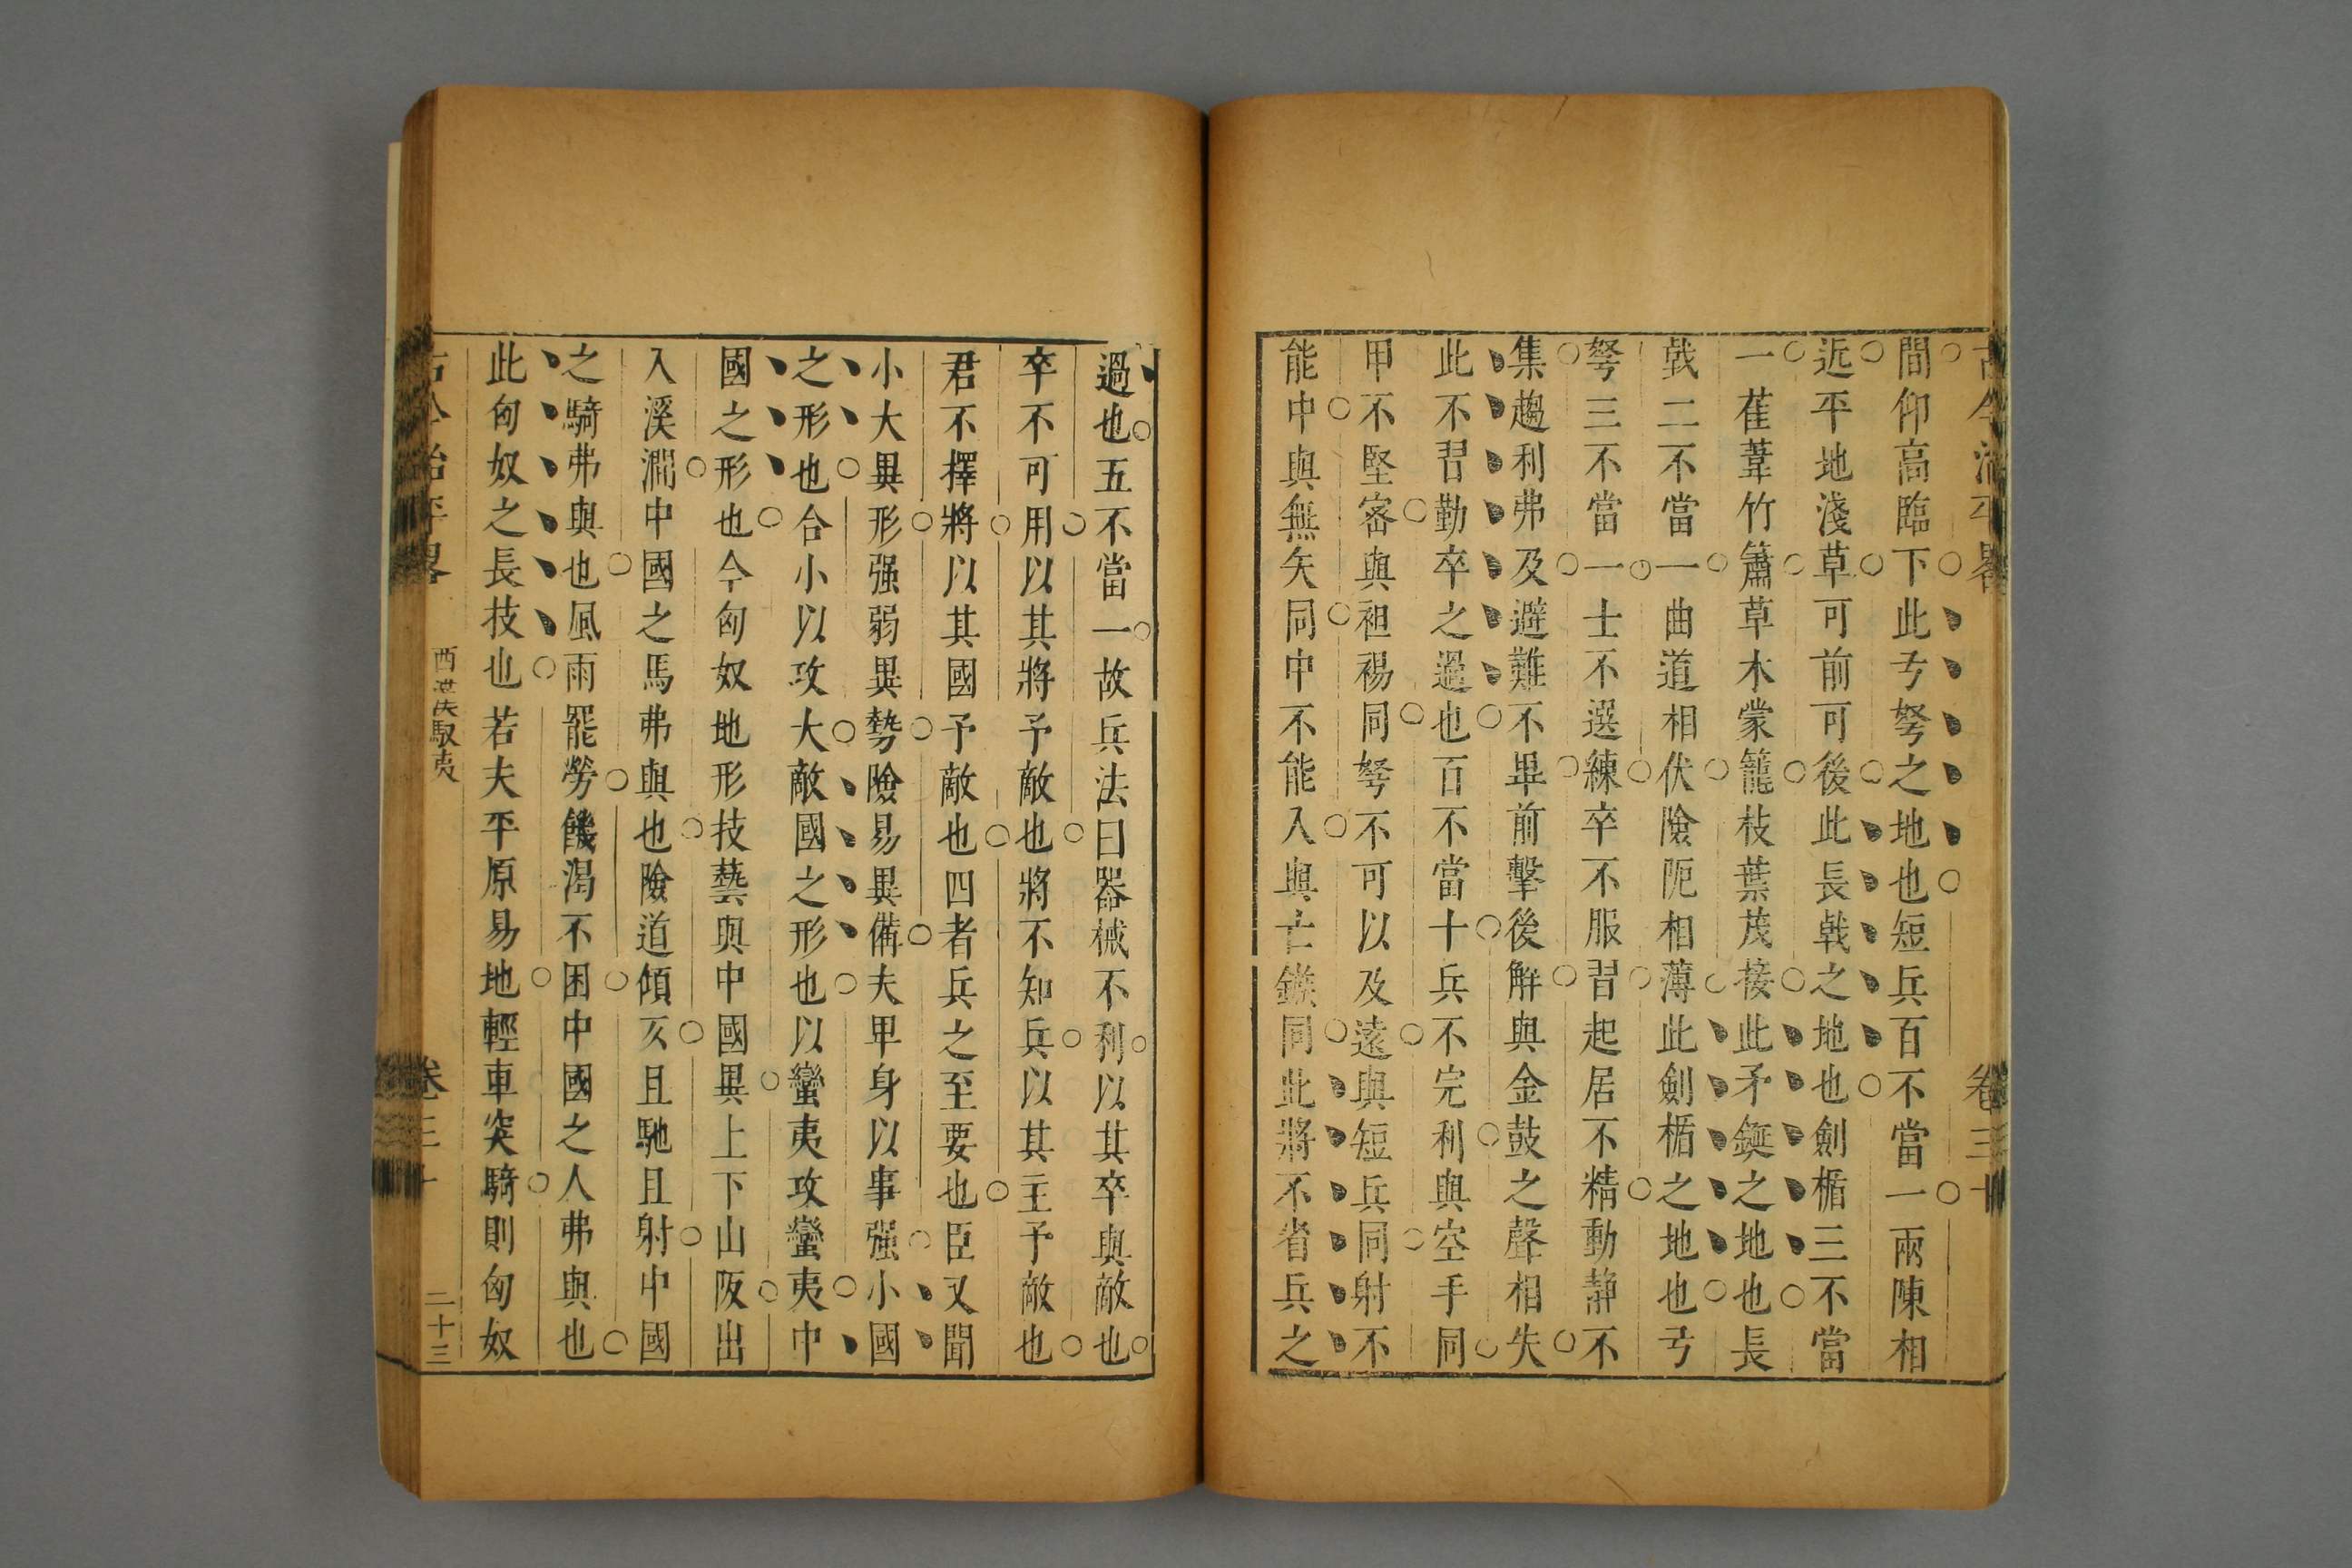 間仰高臨下此弓弩之地也短兵百不當一兩陳相
近平地淺草可前可後此長戟之地也劍楯三不當
一萑葦竹簫草木蒙籠枝葉茂接此矛鋋之地也長
戟二不當一曲道相伏險阨相薄此劍楯之地也弓
弩三不當一士不選練卒不服習起居不精動靜不
集趨利弗及避難不畢前擊後解與金鼓之聲相失
此不習勤卒之過也百不當十兵不完利與空手同
甲不堅密與袒裼同弩不可以及遠與短兵同射不
能中與無矢同中不能入與亡鏃同此將不省兵之
過也五不當一故兵法曰器械不利以其卒與敵也
卒不可用以其將予敵也將不知兵以其主予敵也
君不擇將以其國予敵也四者兵之至要也臣又聞
小大異形强弱異勢險易異備夫卑身以事强小國
之形也合小以攻大敵國之形也以蠻夷攻蠻夷中
國之形也今匈奴地形技藝與中國異上下山阪出
入溪澗中國之馬弗與也險道傾仄且馳且射中國
之騎弗與也風雨罷勞饑渴不困中國之人弗與也
此匈奴之長技也若夫平原易地輕車突騎則匈奴
古今治平畧 西漢馭夷 卷三十 二十三